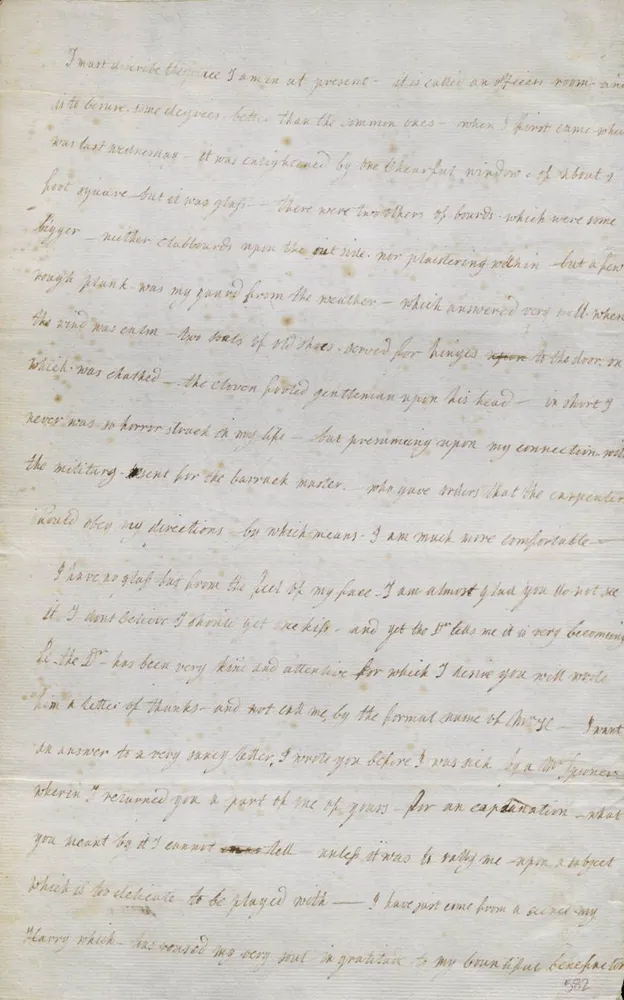 I must describe the place I am in at present - it is called an officers room - and
is to be sure some degrees better than the common ones - when I first came which
was last wednesday - it was enlightened by one Chearful window of about 1
foot square but it was glass - there were two others of boards which were some
bigger - neither clabboards upon the out side nor plaistering within - but a few
rough plank was my guard from the weather - which answered very well when
the wind was calm - two soals of old shoes served for hinges upon to the door, on
which was chalked - the cloven footed gentleman upon his head - in short I
never was so horror struck in my life - but presumeing upon my connection with
the military sent for the barrack master - who gave orders that the carpenter
should obey my directions - by which means I am much more comfortable -
I have no glass but from the feel of my face - I am almost glad you do not see
it. I dont believe I should get one kiss - and yet the Dr. tells me it is very becoming
the Dr. - has been very kind and attentive for which I desire you will write
him a letter of thanks - and not call me, by the formal name of Mrs. - I want
an answer to a very saucy letter, I wrote you before I was sick by a Mr.
wherein I returned you a part of one of yours - for an explanation - what
you meant by it I cannot tell - unless it was to rally me - upon a subject
which is too delicate to be played with - I have just come from a scene my
Harry which - has roused my very soul in gratitude to my bountiful benefactor
582